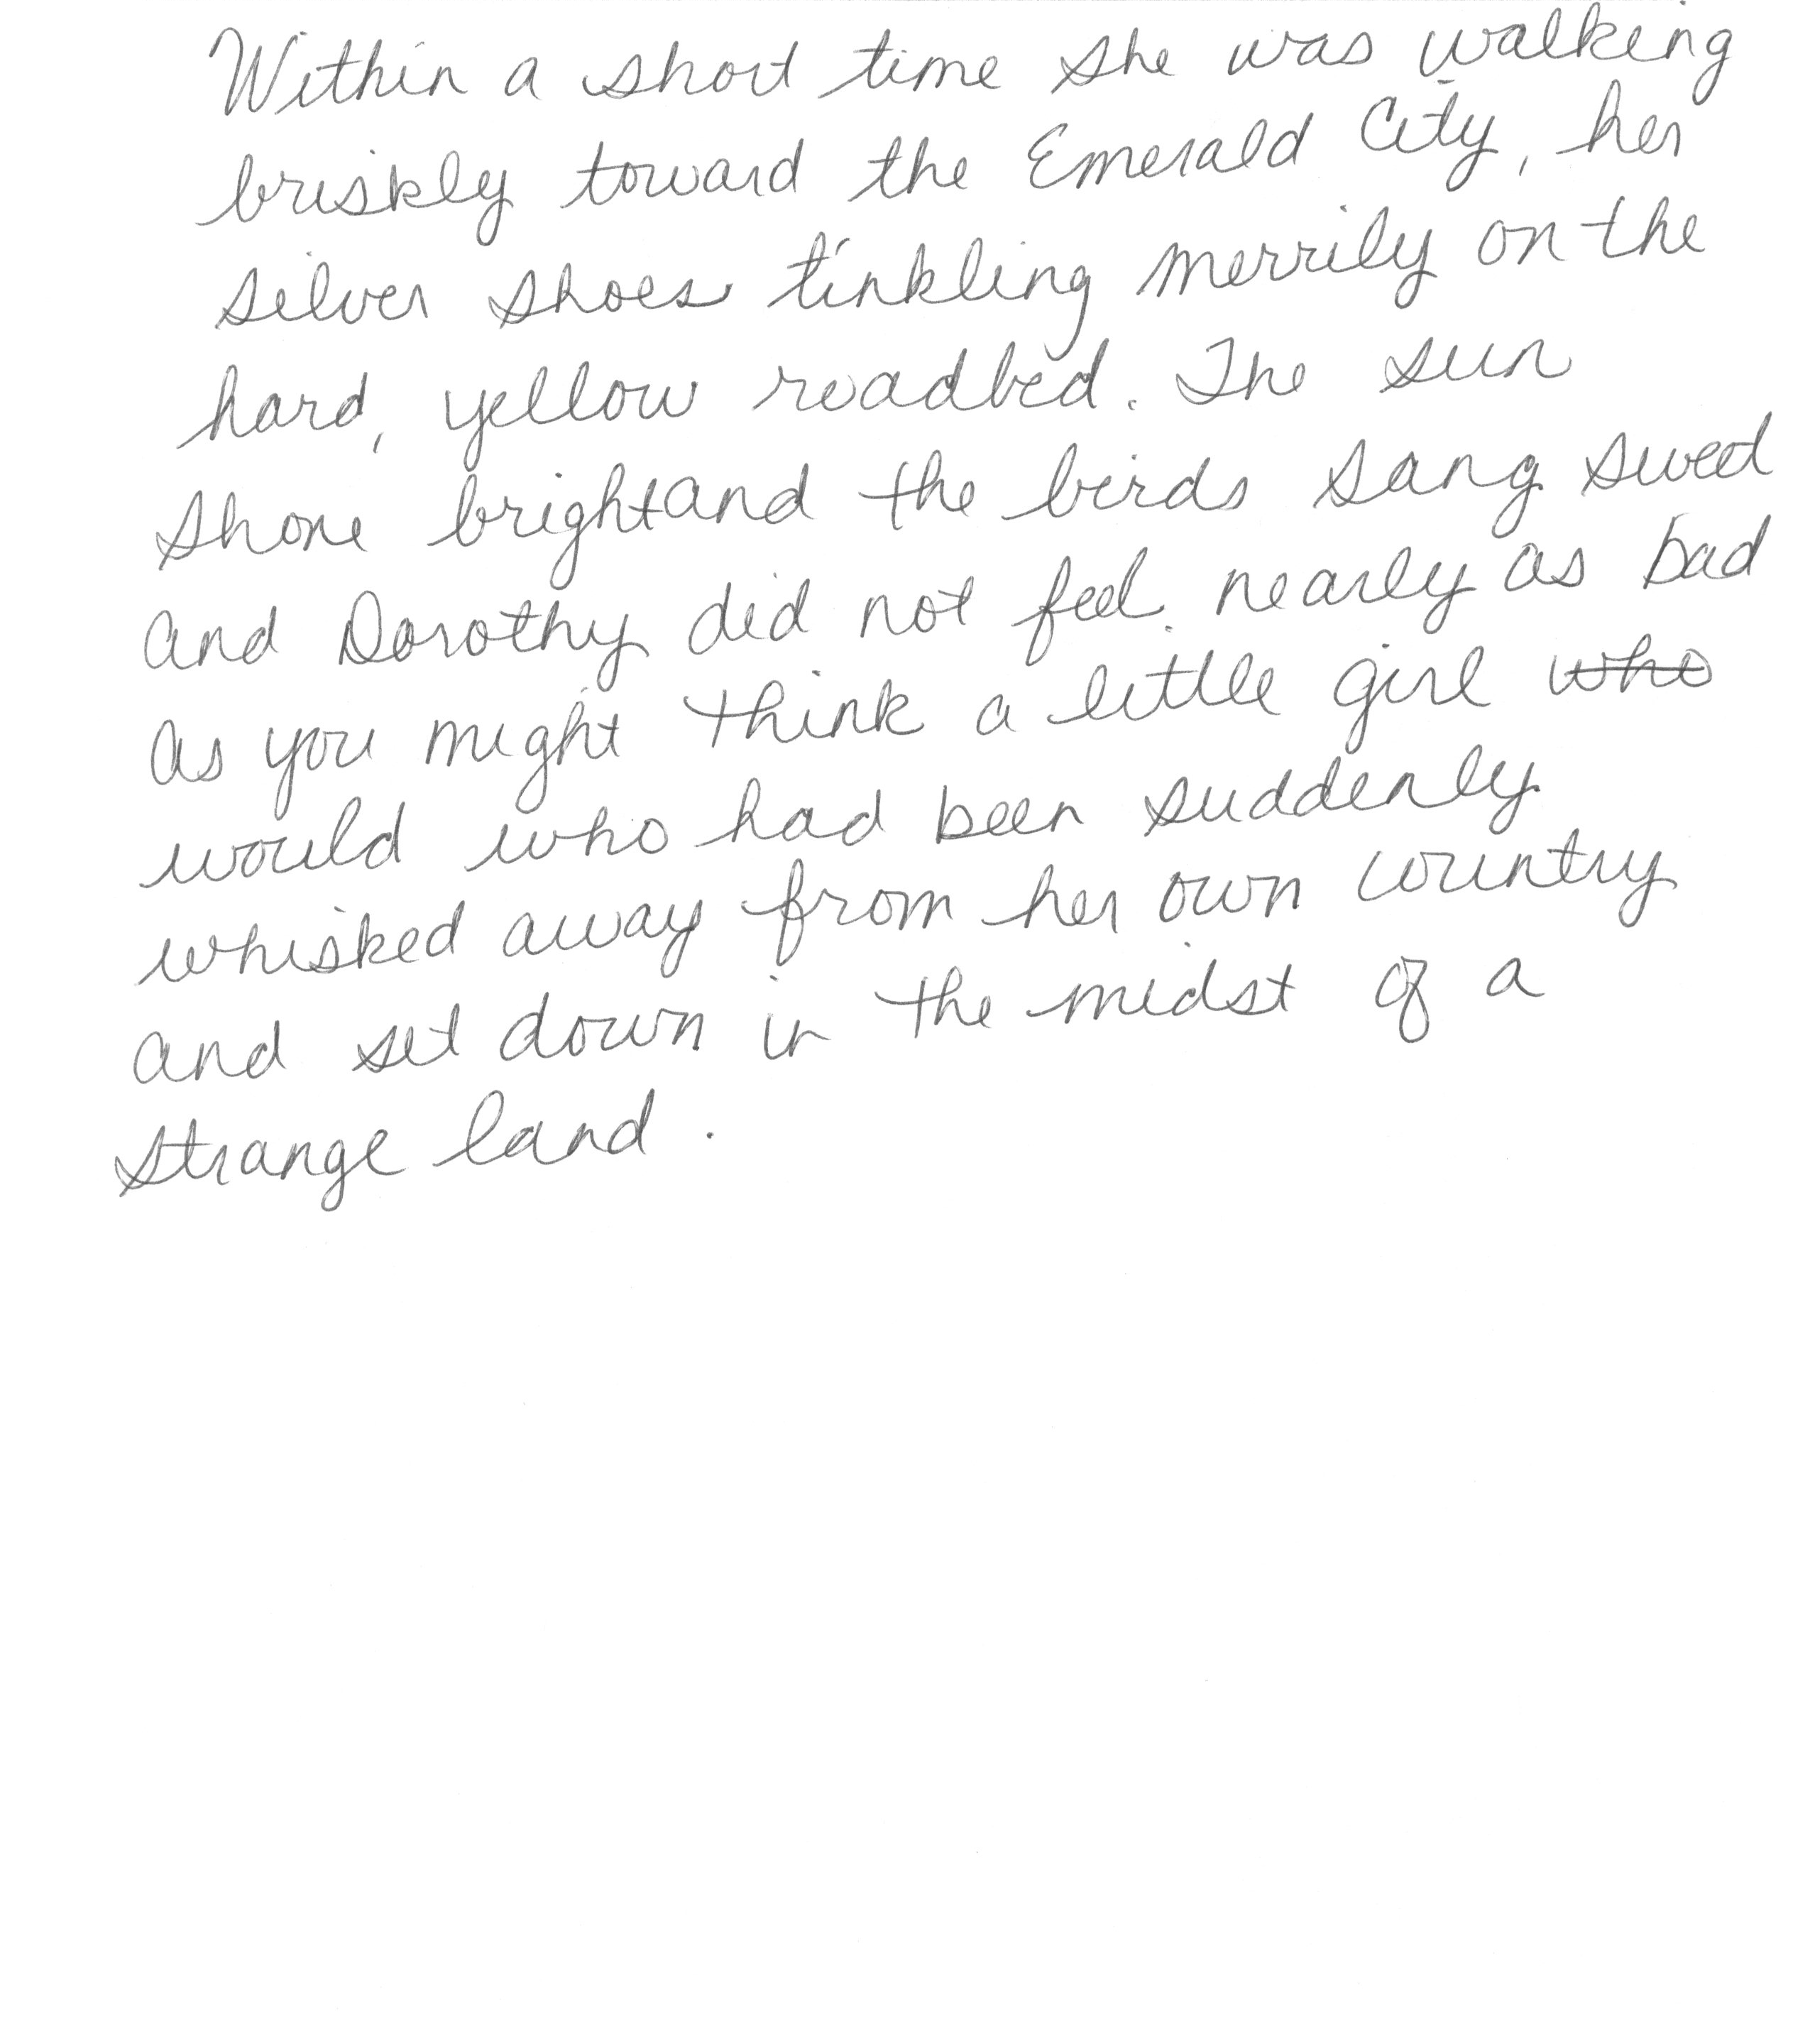 Within a short time she was walking
briskly toward the Emerald City, her
silver shoes tinkling merrily on the
hard, yellow roadbed. The sun
shone bright and the birds sang sweet
and Dorothy did not feel nearly as bad
as you might think a little girl ~~who~~
would who had been suddenly
whisked away from her own country
and set down in the midst of a
strange land.